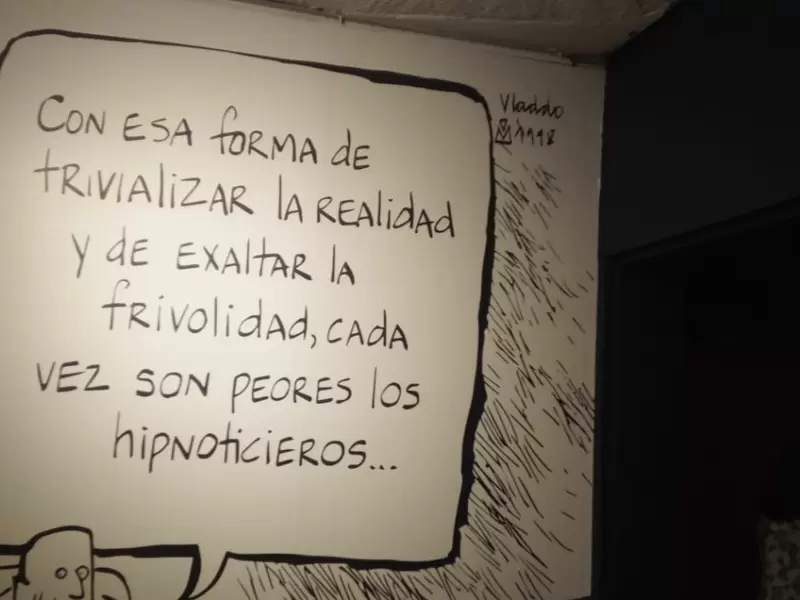 CON ESA forma de
trivializar la realidad
y de exaltar la
frivolidad, cada
vez son peores los
hipnoticieros...
Vladdo
1998